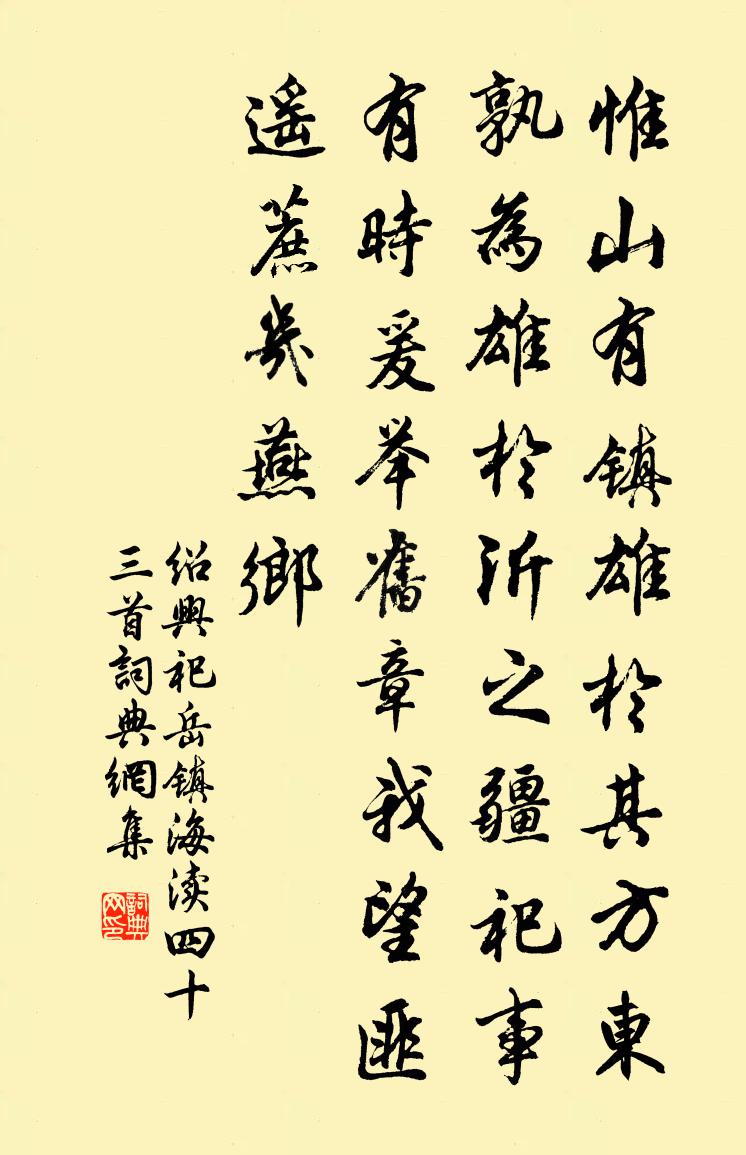 惟山有镇雄於其方東
孰為雄於沂之疆祀事
有時爰举舊章我望匪
遥蔗幾燕鄉
绍興祀岳镇海渎四十
三首詞典網集
詞典网印